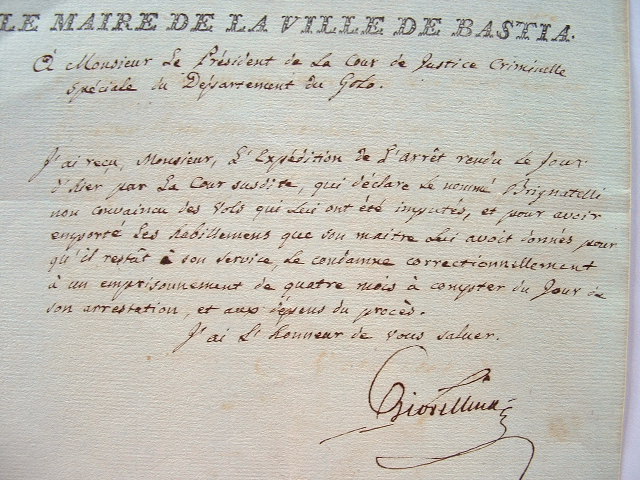 LE MAIRE DE LA VILLE DE BASTIA.
À Monsieur Le Président de La Cour de Justice Criminelle
Spéciale du Département du Golo.
J'ai reçu, Monsieur, L'Expédition de L'arrêt rendu Le Jour
d'hier par La Cour susdite, qui déclare Le nommé Brignatelli
non convaincu des vols qui Lui ont été imputés, et pour avoir
emporté Les habillemens que son maitre Lui avoit donnés pour
qu'il restât à son service, Le condamne correctionnellement
à un emprisonnement de quatre mois à compter du Jour de
son arrestation, et aux dépens du procès.
J'ai L'Honneur de vous saluer.